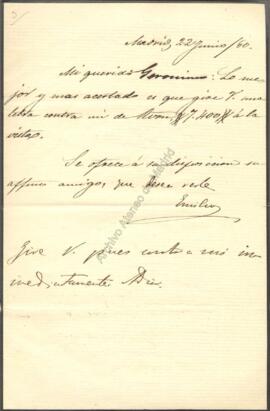 Madrid, 22 Junio/60.
Mi querido Geronimo: Lo me
jor y mas acertado es que gire V. una
letra contra mi de Rvon. 7.400 á la
vista.
Se ofrece á su disposicion su
affmo amigo, que besa
Emilio
Gire V. pues contra mi in
mediatamente. Adios.
Archivo Ateneo de Madrid